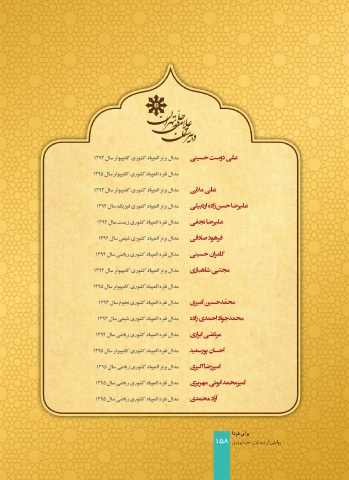 دبیرستان علامه حلی تهران
علی دوست حسینی مدال برنز المپیاد کشوری کامپیوتر سال ۱۳۹۴
مدال نقره المپیاد کشوری کامپیوتر سال ۱۳۹۵
علی ملایی مدال برنز المپیاد کشوری کامپیوتر سال ۱۳۹۴
علیرضا حسن‌زاده اردبیلی مدال برنز المپیاد کشوری فیزیک سال ۱۳۹۴
علیرضا نجفی مدال نقره المپیاد کشوری زیست سال ۱۳۹۴
فرهود صادقی مدال برنز المپیاد کشوری شیمی سال ۱۳۹۴
کامران حسینی مدال نقره المپیاد کشوری ریاضی سال ۱۳۹۴
مجتبی شاهسازی مدال برنز المپیاد کشوری کامپیوتر سال ۱۳۹۴
مدال نقره المپیاد کشوری کامپیوتر سال ۱۳۹۵
محمدحسین امیری مدال نقره المپیاد کشوری نجوم سال ۱۳۹۴
محمدجواد احمدی زاده مدال نقره المپیاد کشوری شیمی سال ۱۳۹۴
مرتضی ابراری مدال نقره المپیاد کشوری ریاضی سال ۱۳۹۴
احسان پورسعید مدال نقره المپیاد کشوری کامپیوتر سال ۱۳۹۵
امیررضا اکبری مدال برنز المپیاد کشوری ریاضی سال ۱۳۹۵
امیرمحمد ایوبی مهریزی مدال نقره المپیاد کشوری ریاضی سال ۱۳۹۵
آراد محمدی مدال نقره المپیاد کشوری ریاضی سال ۱۳۹۵
برای فردا
۱۵۸